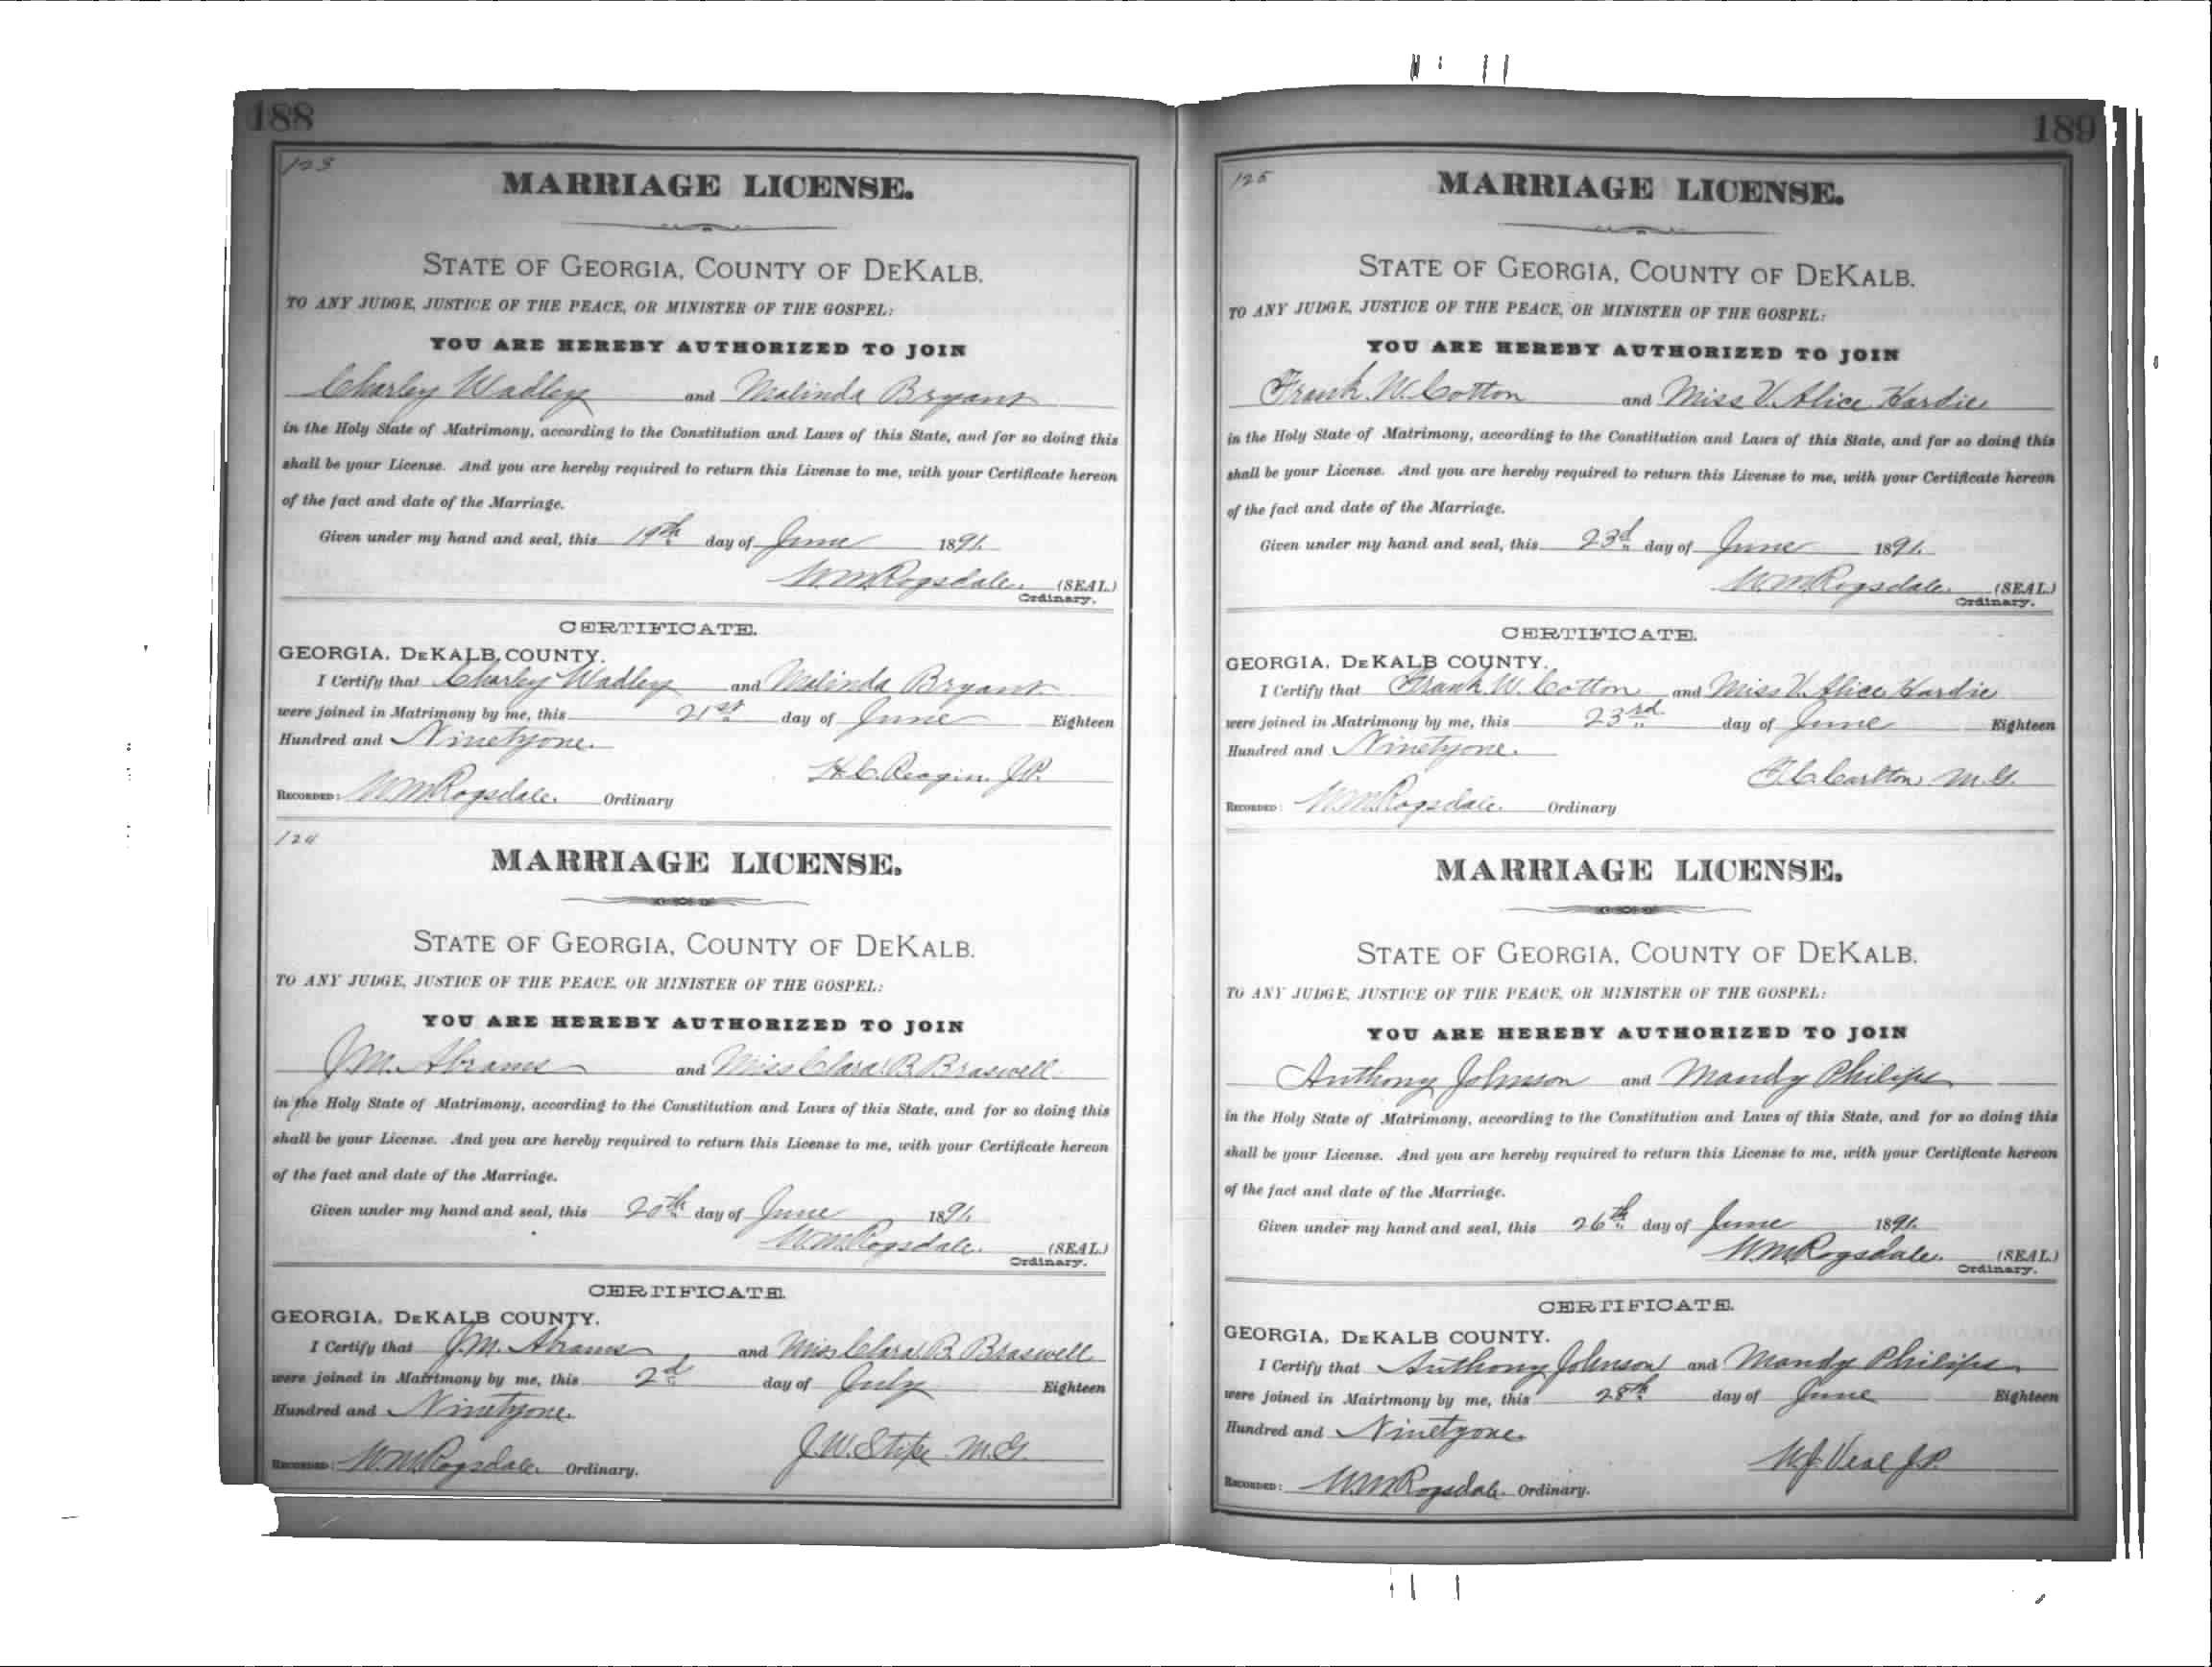 188
123
MARRIAGE LICENSE.
STATE OF GEORGIA, COUNTY OF DEKALB.
TO ANY JUDGE, JUSTICE OF THE PEACE, OR MINISTER OF THE GOSPEL:
YOU ARE HEREBY AUTHORIZED TO JOIN
Charley Wadley and Malinda Bryant
in the Holy State of Matrimony, according to the Constitution and Laws of this State, and for so doing this
shall be your License. And you are hereby required to return this License to me, with your Certificate hereon
of the fact and date of the Marriage.
Given under my hand and seal, this 19th day of June 1891.
W.M. Ragsdale. (SEAL.)
Ordinary.
CERTIFICATE.
GEORGIA, DEKALB COUNTY.
I Certify that Charley Wadley and Malinda Bryant
were joined in Matrimony by me, this 21st day of June Eighteen
Hundred and Ninetyone.
H.C. Reagin. J.P.
RECORDED: W.M. Ragsdale. Ordinary
124
MARRIAGE LICENSE.
STATE OF GEORGIA, COUNTY OF DEKALB.
TO ANY JUDGE, JUSTICE OF THE PEACE, OR MINISTER OF THE GOSPEL:
YOU ARE HEREBY AUTHORIZED TO JOIN
J.M. Abrams and Miss Clara B. Braswell
in the Holy State of Matrimony, according to the Constitution and Laws of this State, and for so doing this
shall be your License. And you are hereby required to return this License to me, with your Certificate hereon
of the fact and date of the Marriage.
Given under my hand and seal, this 20th day of June 1891.
W.M. Ragsdale. (SEAL.)
Ordinary.
CERTIFICATE.
GEORGIA, DEKALB COUNTY.
I Certify that J.M. Abrams and Miss Clara B. Braswell
were joined in Matrimony by me, this 2d day of July Eighteen
Hundred and Ninetyone.
J.W. Stipe M.G.
RECORDED: W.M. Ragsdale. Ordinary.
189
125
MARRIAGE LICENSE.
STATE OF GEORGIA, COUNTY OF DEKALB.
TO ANY JUDGE, JUSTICE OF THE PEACE, OR MINISTER OF THE GOSPEL:
YOU ARE HEREBY AUTHORIZED TO JOIN
Frank W. Cotton and Miss V. Alice Hardie
in the Holy State of Matrimony, according to the Constitution and Laws of this State, and for so doing this
shall be your License. And you are hereby required to return this License to me, with your Certificate hereon
of the fact and date of the Marriage.
Given under my hand and seal, this 23d day of June 1891.
W.M. Ragsdale. (SEAL.)
Ordinary.
CERTIFICATE.
GEORGIA, DEKALB COUNTY.
I Certify that Frank W. Cotton and Miss V. Alice Hardie
were joined in Matrimony by me, this 23rd day of June Eighteen
Hundred and Ninetyone.
Carlton M.G.
RECORDED: W.M. Ragsdale. Ordinary
MARRIAGE LICENSE.
STATE OF GEORGIA, COUNTY OF DEKALB.
TO ANY JUDGE, JUSTICE OF THE PEACE, OR MINISTER OF THE GOSPEL:
YOU ARE HEREBY AUTHORIZED TO JOIN
Anthony Johnson and Mandy Philips
in the Holy State of Matrimony, according to the Constitution and Laws of this State, and for so doing this
shall be your License. And you are hereby required to return this License to me, with your Certificate hereon
of the fact and date of the Marriage.
Given under my hand and seal, this 26th day of June 1891.
W.M. Ragsdale. (SEAL.)
Ordinary.
CERTIFICATE.
GEORGIA, DEKALB COUNTY.
I Certify that Anthony Johnson and Mandy Philips
were joined in Mairtmony by me, this 28th day of June Eighteen
Hundred and Ninetyone.
W.J. Veal J.P.
RECORDED: W.M. Ragsdale. Ordinary.